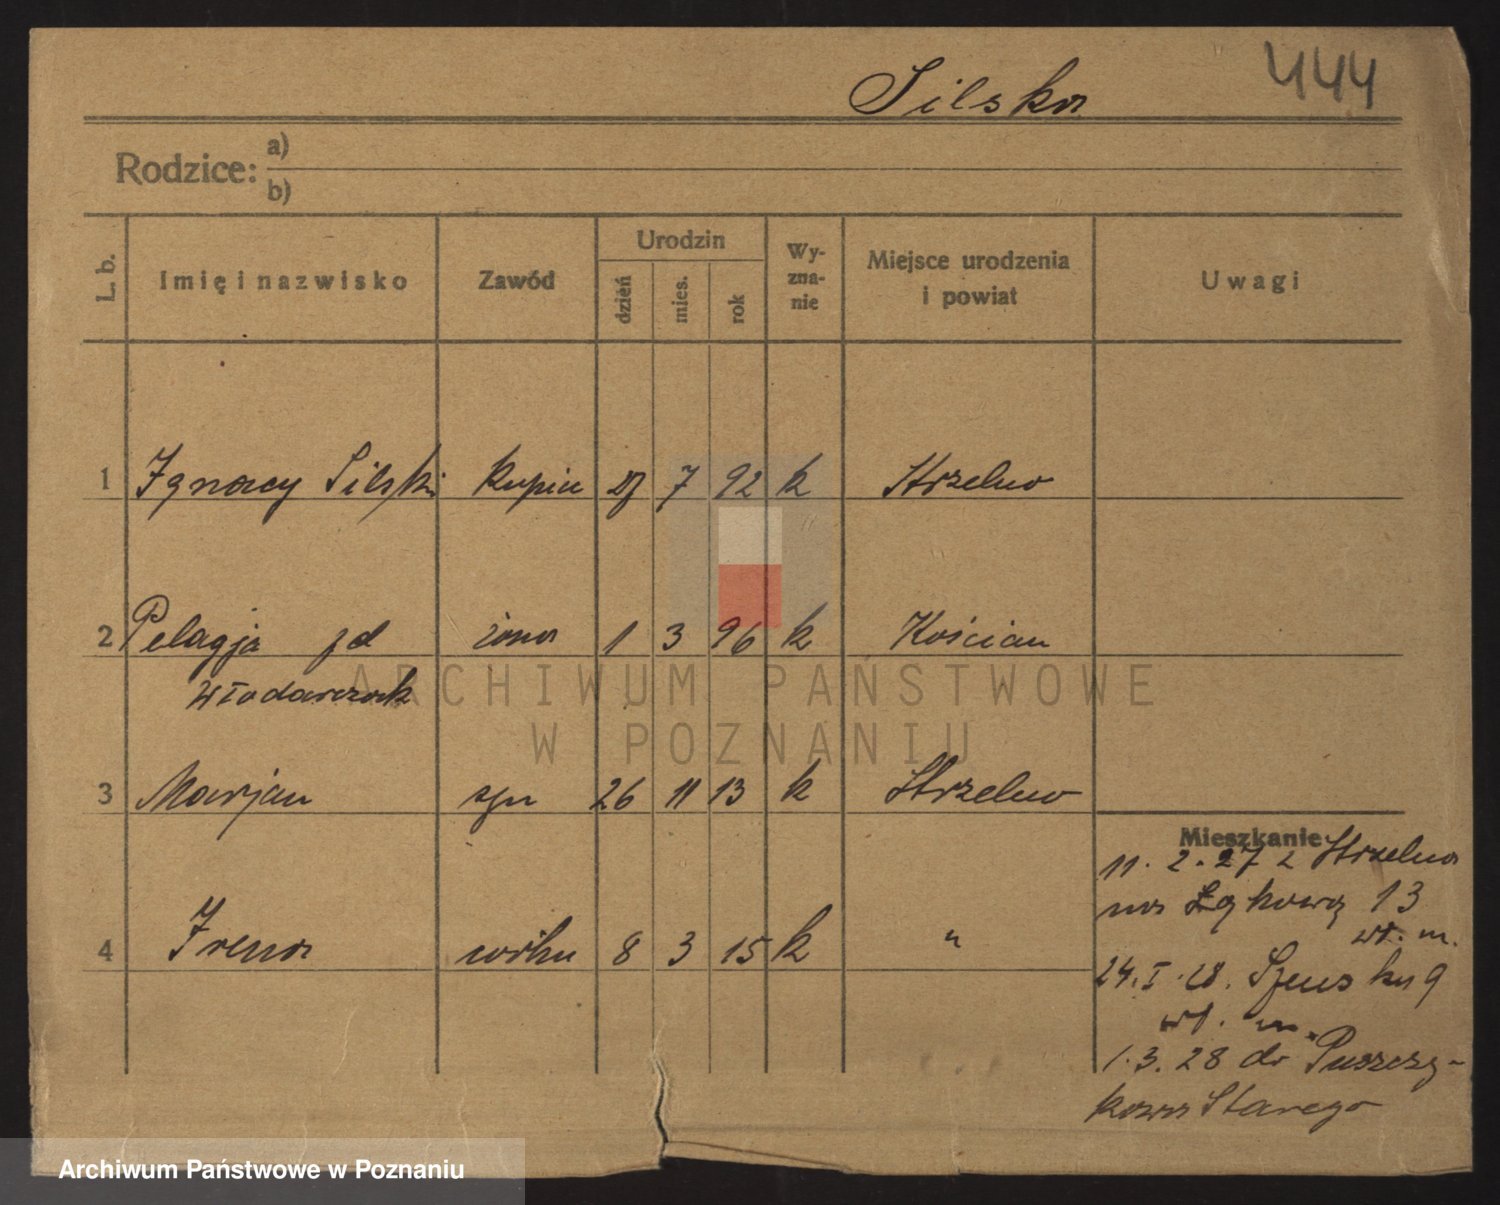 Silska 444
Rodzice: a)
b)
L. b. Imię i nazwisko Zawód Urodzin dzień mies. rok Wy-zna-nie Miejsce urodzenia i powiat Uwagi
1 Ignacy Silski kupiec 7 92 k Strzelno
2 Pelagja żona 1 3 96 k Kościan
Włodarczak
3 Marjan syn 26 11 13 k Strzelno
4 Irena córka 8 3 15 k "
Mieszkanie
11. 2. 27 z Strzelna
na Łąkową 13
wł. m.
24. I. 28. 9
wł. m.
1. 3. 28 do Puszczy-
kowa Starego
ARCHIWUM PAŃSTWOWE
W POZNANIU
Archiwum Państwowe w Poznaniu